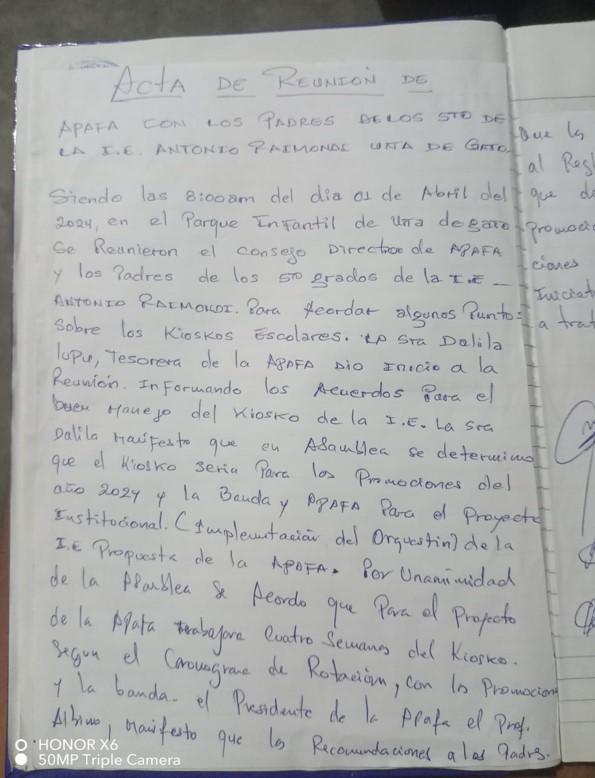 Acta de Reunión de
APAFA CON LOS PADRES DE LOS 5TO DE
LA I.E. ANTONIO RAIMONDI UÑA DE GATO.
Siendo las 8:00am del dia 01 de Abril del
2024, en el Parque Infantil de Uña de gato
Se Reunieron el consejo Directivo de APAFA
y los Padres de los 5TO grados de la I.E -
ANTONIO RAIMONDI. Para Acordar algunos Puntos
Sobre los Kioskos Escolares. La Sra Dalila
lupu, Tesorera de la APAFA DIO Inicio a la
Reunión. Informando los Acuerdos Para el
buen Manejo del Kiosko de la I.E. La Sra
Dalila Manifesto que en Asamblea se determino
que el Kiosko seria Para las Promociones del
año 2024 y la Banda y APAFA Para el Proyecto
Institucional. (Implementación del Orquestin) de la
I.E Propuesta de la APAFA. Por Unanimidad
de la Asamblea Se Acordo que Para el Proyecto
de la Apafa trabajara Cuatro Semanas del Kiosko.
Segun el Cronograma de Rotación, con la Promocion
y la banda. el Presidente de la Apafa el Prof.
Albino, Manifesto que las Recomendaciones a los Padres.
Que la
al Regl
que de
promoci
ciones
Iniciat
a trat
HONOR X6
50MP Triple Camera